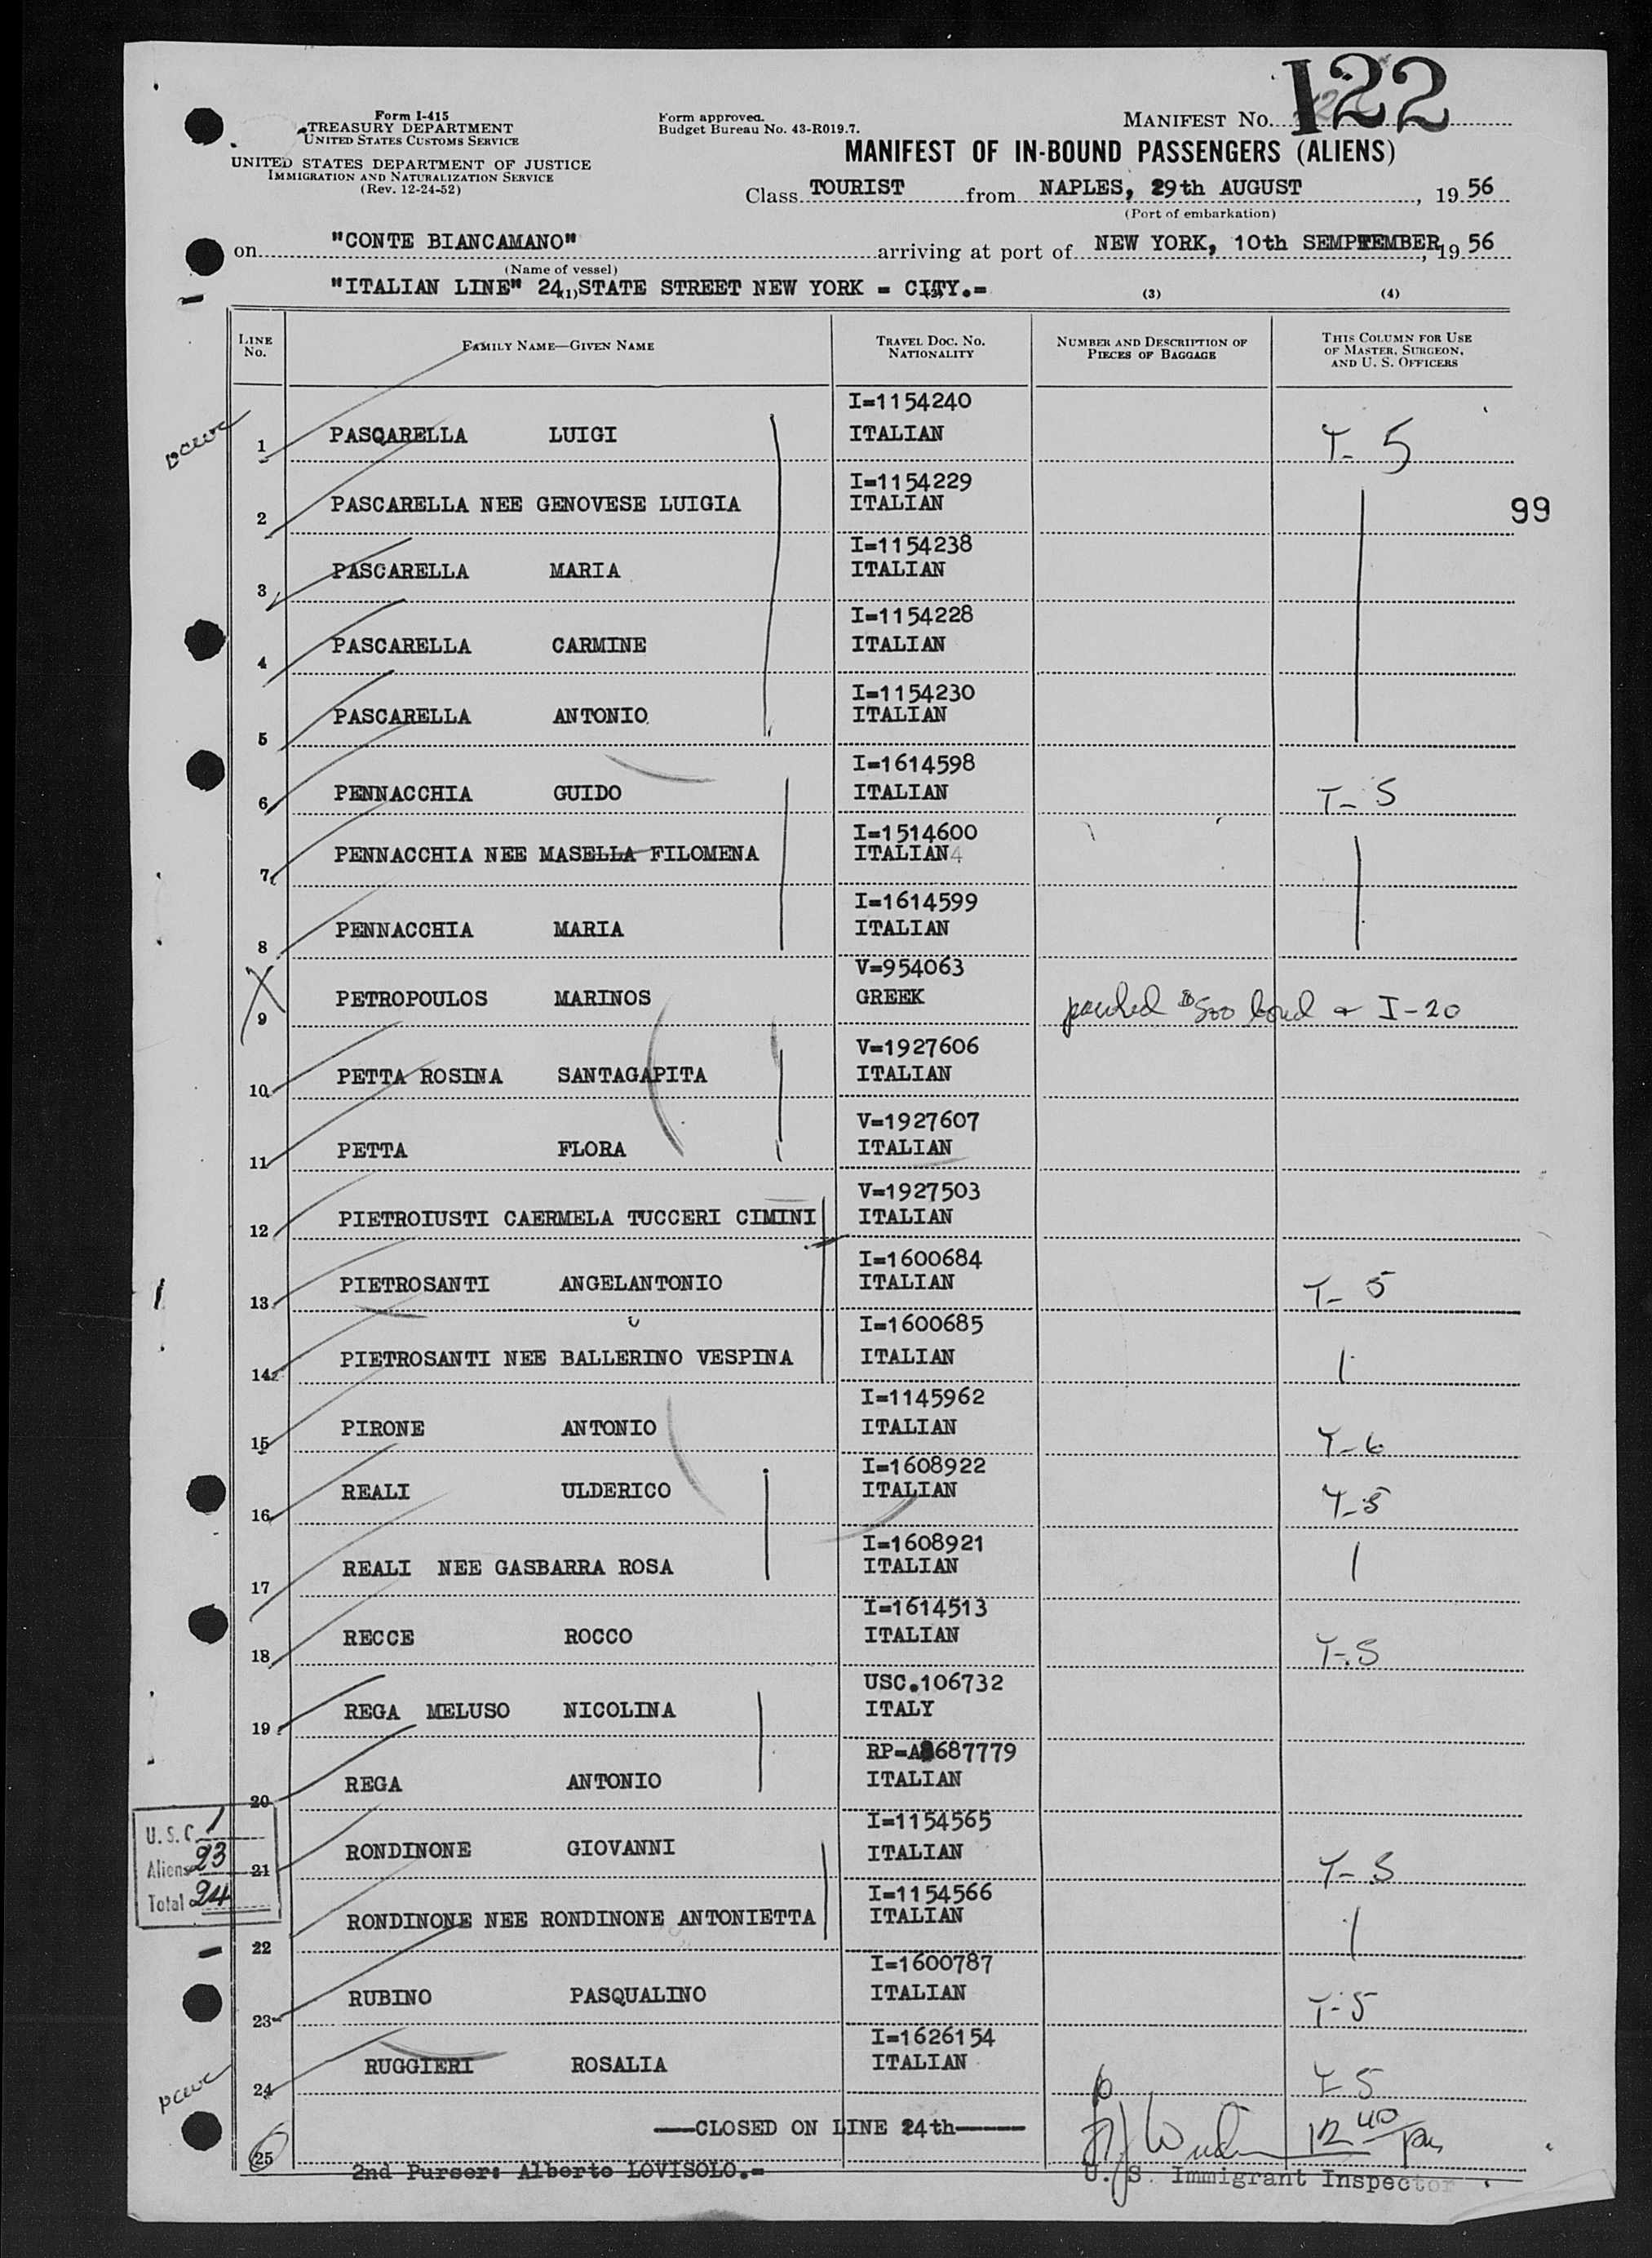 122
Form I-415
TREASURY DEPARTMENT
UNITED STATES CUSTOMS SERVICE
UNITED STATES DEPARTMENT OF JUSTICE
IMMIGRATION AND NATURALIZATION SERVICE
(Rev. 12-24-52)
Form approved.
Budget Bureau No. 43-R019.7.
MANIFEST NO.
MANIFEST OF IN-BOUND PASSENGERS (ALIENS)
Class TOURIST from NAPLES, 29th AUGUST, 19 56
(Port of embarkation)
on "CONTE BIANCAMANO" arriving at port of NEW YORK, 10th SEMPTEMBER, 19 56
(Name of vessel)
"ITALIAN LINE" 24 STATE STREET NEW YORK = CITY.=
(1) (2) (3) (4)
LINE No. FAMILY NAME—GIVEN NAME TRAVEL DOC. NO. NATIONALITY NUMBER AND DESCRIPTION OF PIECES OF BAGGAGE THIS COLUMN FOR USE OF MASTER, SURGEON, AND U. S. OFFICERS
I=1154240
1 PASQARELLA LUIGI ITALIAN T-5
I=1154229
2 PASCARELLA NEE GENOVESE LUIGIA ITALIAN
99
I=1154238
3 PASCARELLA MARIA ITALIAN
I=1154228
4 PASCARELLA CARMINE ITALIAN
I=1154230
5 PASCARELLA ANTONIO ITALIAN
I=1614598
6 PENNACCHIA GUIDO ITALIAN T-5
I=1514600
7 PENNACCHIA NEE MASELLA FILOMENA ITALIAN 4
I=1614599
8 PENNACCHIA MARIA ITALIAN
V=954063
9 PETROPOULOS MARINOS GREEK $500 bond I-20
V=1927606
10 PETTA ROSINA SANTAGAPITA ITALIAN
V=1927607
11 PETTA FLORA ITALIAN
V=1927503
12 PIETROIUSTI CAERMELA TUCCERI CIMINI ITALIAN
I=1600684
13 PIETROSANTI ANGELANTONIO ITALIAN T-5
I=1600685
14 PIETROSANTI NEE BALLERINO VESPINA ITALIAN
I=1145962
15 PIRONE ANTONIO ITALIAN T-6
I=1608922
16 REALI ULDERICO ITALIAN T-5
I=1608921
17 REALI NEE GASBARRA ROSA ITALIAN
I=1614513
18 RECCE ROCCO ITALIAN T-5
USC.106732
19 REGA MELUSO NICOLINA ITALY
RP=A8687779
20 REGA ANTONIO ITALIAN
I=1154565
21 RONDINONE GIOVANNI ITALIAN T-5
U.S.C. 1
Aliens 23
Total 24
I=1154566
22 RONDINONE NEE RONDINONE ANTONIETTA ITALIAN
I=1600787
23 RUBINO PASQUALINO ITALIAN T-5
I=1626154
24 RUGGIERI ROSALIA ITALIAN T-5
——CLOSED ON LINE 24th——
12 40 pm
25
2nd Purser: Alberto LOVISOLO.=
U. S. Immigrant Inspector